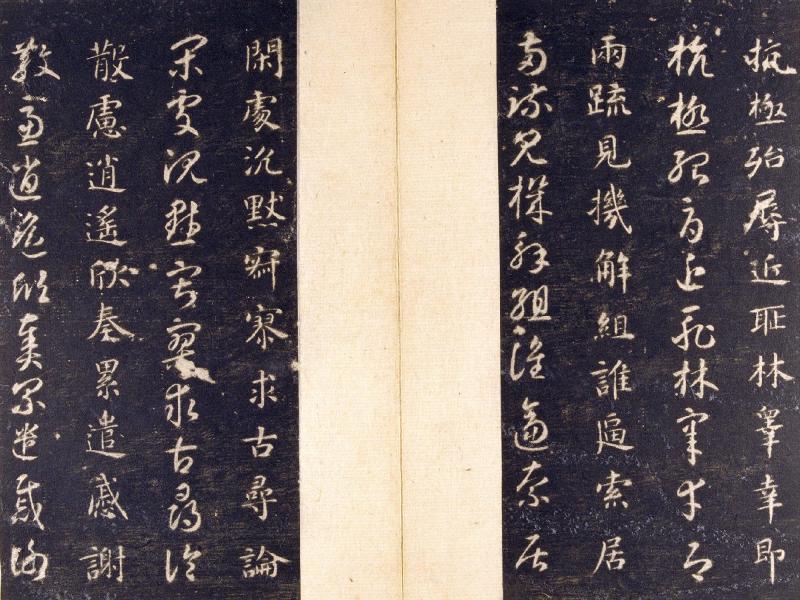 抗極殆辱近耻林睾幸即
抗極殆辱近耻林睾幸即
兩疏見機解組誰逼索居
兩疏見機解組誰逼索居
閑處沉默寂寥求古尋論
閑處沉默寂寥求古尋論
散慮逍遙欣奏累遣慼謝
散慮逍遙欣奏累遣慼謝